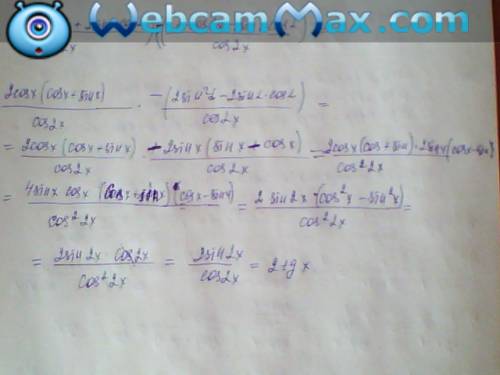 WebcamMax.com
cos2x
2cosx(cosx+sinx) / cos2x · −(2sin²x−2sinx·cosx) / cos2x =
= 2cosx(cosx+sinx) / cos2x · −2sinx(sinx−cosx) / cos2x = 2cosx(cos+sin)·2sinx(cosx−sinx) / cos²2x
= 4sinx cosx (cosx+sinx)(cosx−sinx) / cos²2x = 2sin2x·(cos²x−sin²x) / cos²2x =
= 2sin2x cos2x / cos²2x = 2sin2x / cos2x = 2tgx